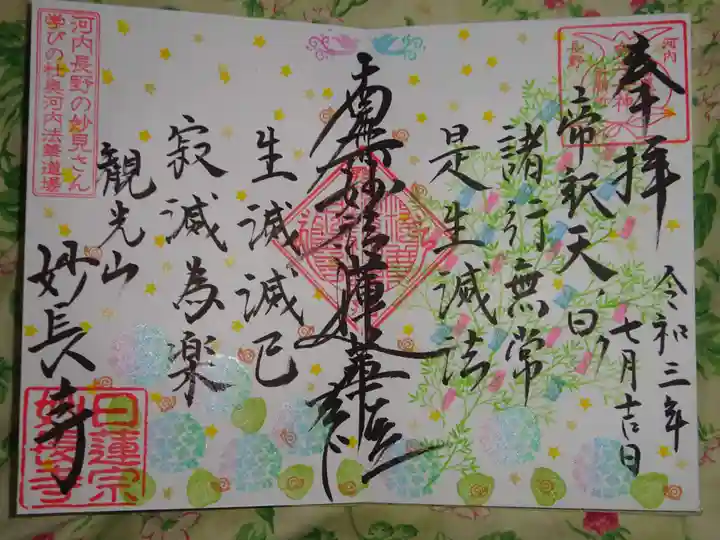 奉拝
令和三年
七月吉日
帝釈天の日
諸行無常
是生滅法
南無妙法蓮華経
生滅滅已
寂滅為楽
観光山
妙長寺
河内
長野
神
河内長野の妙見さん
学びの社奥河内法華道場
日蓮宗
妙長寺